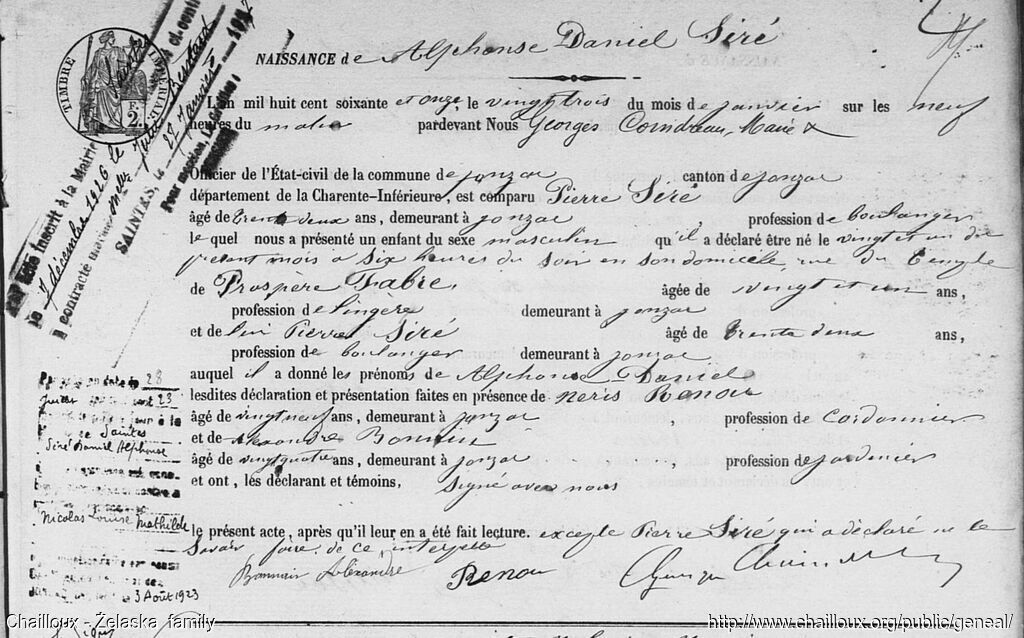 NAISSANCE de Alphonse Daniel Siré
TIMBRE IMPÉRIAL
F.
2
L'an mil huit cent soixante et onze, le vingt trois du mois de janvier sur les neuf
heures du matin pardevant Nous Georges Maire
Officier de l'État-civil de la commune de Jonzac canton de Jonzac
département de la Charente-Inférieure, est comparu Pierre Siré
âgé de trente deux ans, demeurant à Jonzac, profession de boulanger
le quel nous a présenté un enfant du sexe masculin qu'il a déclaré être né le vingt et un du
présent mois a six heures du soir en son domicile, rue du Temple
de Prospère Fabre, âgée de vingt et un ans,
profession de lingère demeurant à Jonzac
et de lui Pierre Siré âgé de trente deux ans,
profession de boulanger demeurant à Jonzac
auquel il a donné les prénoms de Alphonse Daniel
lesdites déclaration et présentation faites en présence de Renou
âgé de vingt neuf ans, demeurant à Jonzac, profession de cordonnier
et de Alexandre
âgé de vingt quatre ans, demeurant à Jonzac, profession de jardinier
et ont, les déclarant et témoins, signé avec nous
le présent acte, après qu'il leur en a été fait lecture. excepté Pierre Siré qui a déclaré ne le
savoir faire de ce
Alexandre Renou
inscrit à la Mairie
le 7 décembre 1926
a contracté
SAINTES, le 27 Janvier
Pour mention,
28
Juillet 23
Saintes
Siré Daniel Alphonse
Nicolas Louise Mathilde
3 Août 1923
Chailloux - Żelaska family
http://www.chailloux.org/public/geneal/